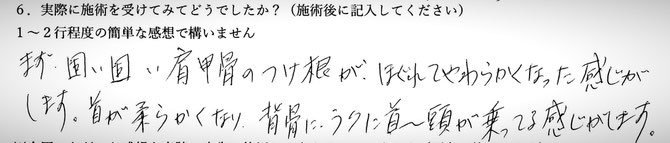 6．実際に施術を受けてみてどうでしたか？（施術後に記入してください）
1～2行程度の簡単な感想で構いません
まず、固い固い肩甲骨のつけ根が、ほぐれてやわらかくなった感じが
します。首が柔らかくなり、背骨に、ラクに首～頭が乗ってる感じがします。